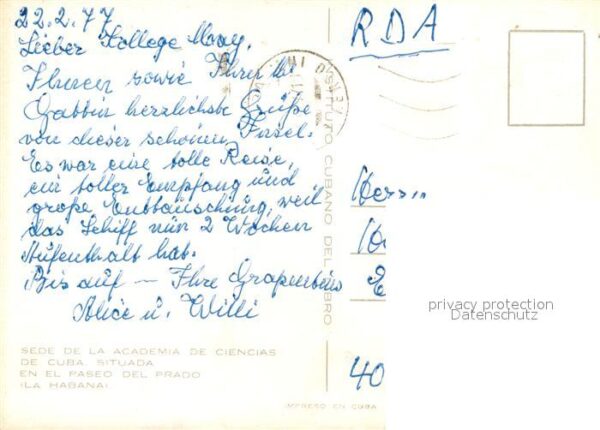 22.2.77
Lieber Kollege May,
Ihnen sowie Ihrer lb.
Gattin herzlichste Grüße
von dieser schönen Insel.
Es war eine tolle Reise,
ein toller Empfang und
große Enttäuschung, weil
das Schiff nur 2 Wochen
Aufenthalt hat.
Bis auf — Ihre
Alice u. Willi
SEDE DE LA ACADEMIA DE CIENCIAS
DE CUBA, SITUADA
EN EL PASEO DEL PRADO
(LA HABANA).
INSTITUTO CUBANO DEL LIBRO
IMPRESO EN CUBA
RDA
privacy protection
Datenschutz
40